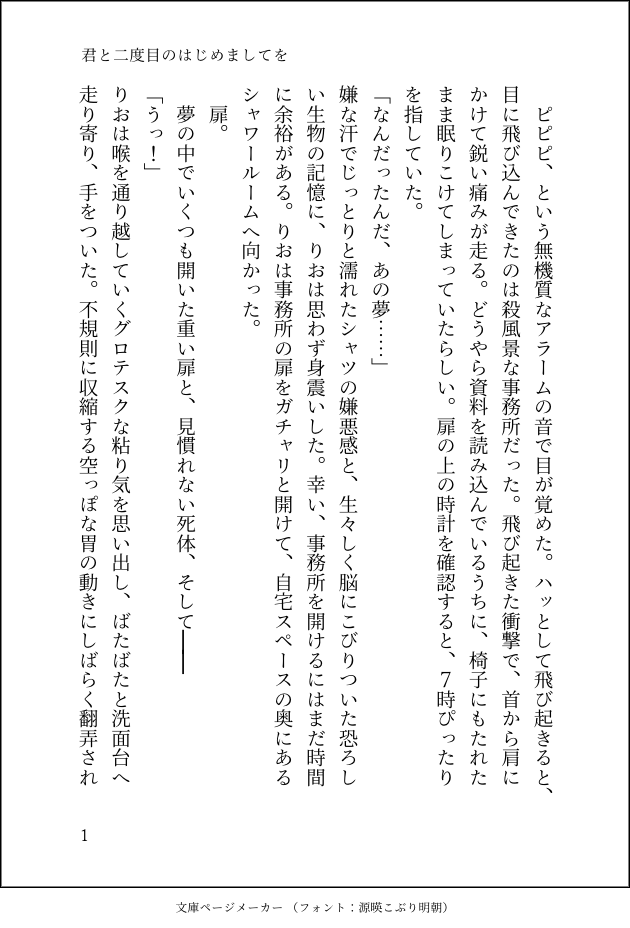 君と二度目のはじめましてを
　ピピピ、という無機質なアラームの音で目が覚めた。ハッとして飛び起きると、
目に飛び込んできたのは殺風景な事務所だった。飛び起きた衝撃で、首から肩に
かけて鋭い痛みが走る。どうやら資料を読み込んでいるうちに、椅子にもたれた
まま眠りこけてしまっていたらしい。扉の上の時計を確認すると、７時ぴったり
を指していた。
「なんだったんだ、あの夢……」
嫌な汗でじっとりと濡れたシャツの嫌悪感と、生々しく脳にこびりついた恐ろし
い生物の記憶に、りおは思わず身震いした。幸い、事務所を開けるにはまだ時間
に余裕がある。りおは事務所の扉をガチャリと開けて、自宅スペースの奥にある
シャワールームへ向かった。
　扉。
　夢の中でいくつも開いた重い扉と、見慣れない死体、そして――
「うっ！」
りおは喉を通り越していくグロテスクな粘り気を思い出し、ばたばたと洗面台へ
走り寄り、手をついた。不規則に収縮する空っぽな胃の動きにしばらく翻弄され
1
文庫ページメーカー （フォント：源暎こぶり明朝）